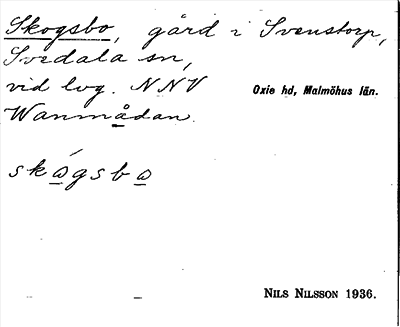 Skogsbo, gård i Svenstorp,
Svedala sn,
vid lvg. NNV
Oxie hd, Malmöhus län.
Wanmådan.
skógsbo
NILS NILSSON 1936.